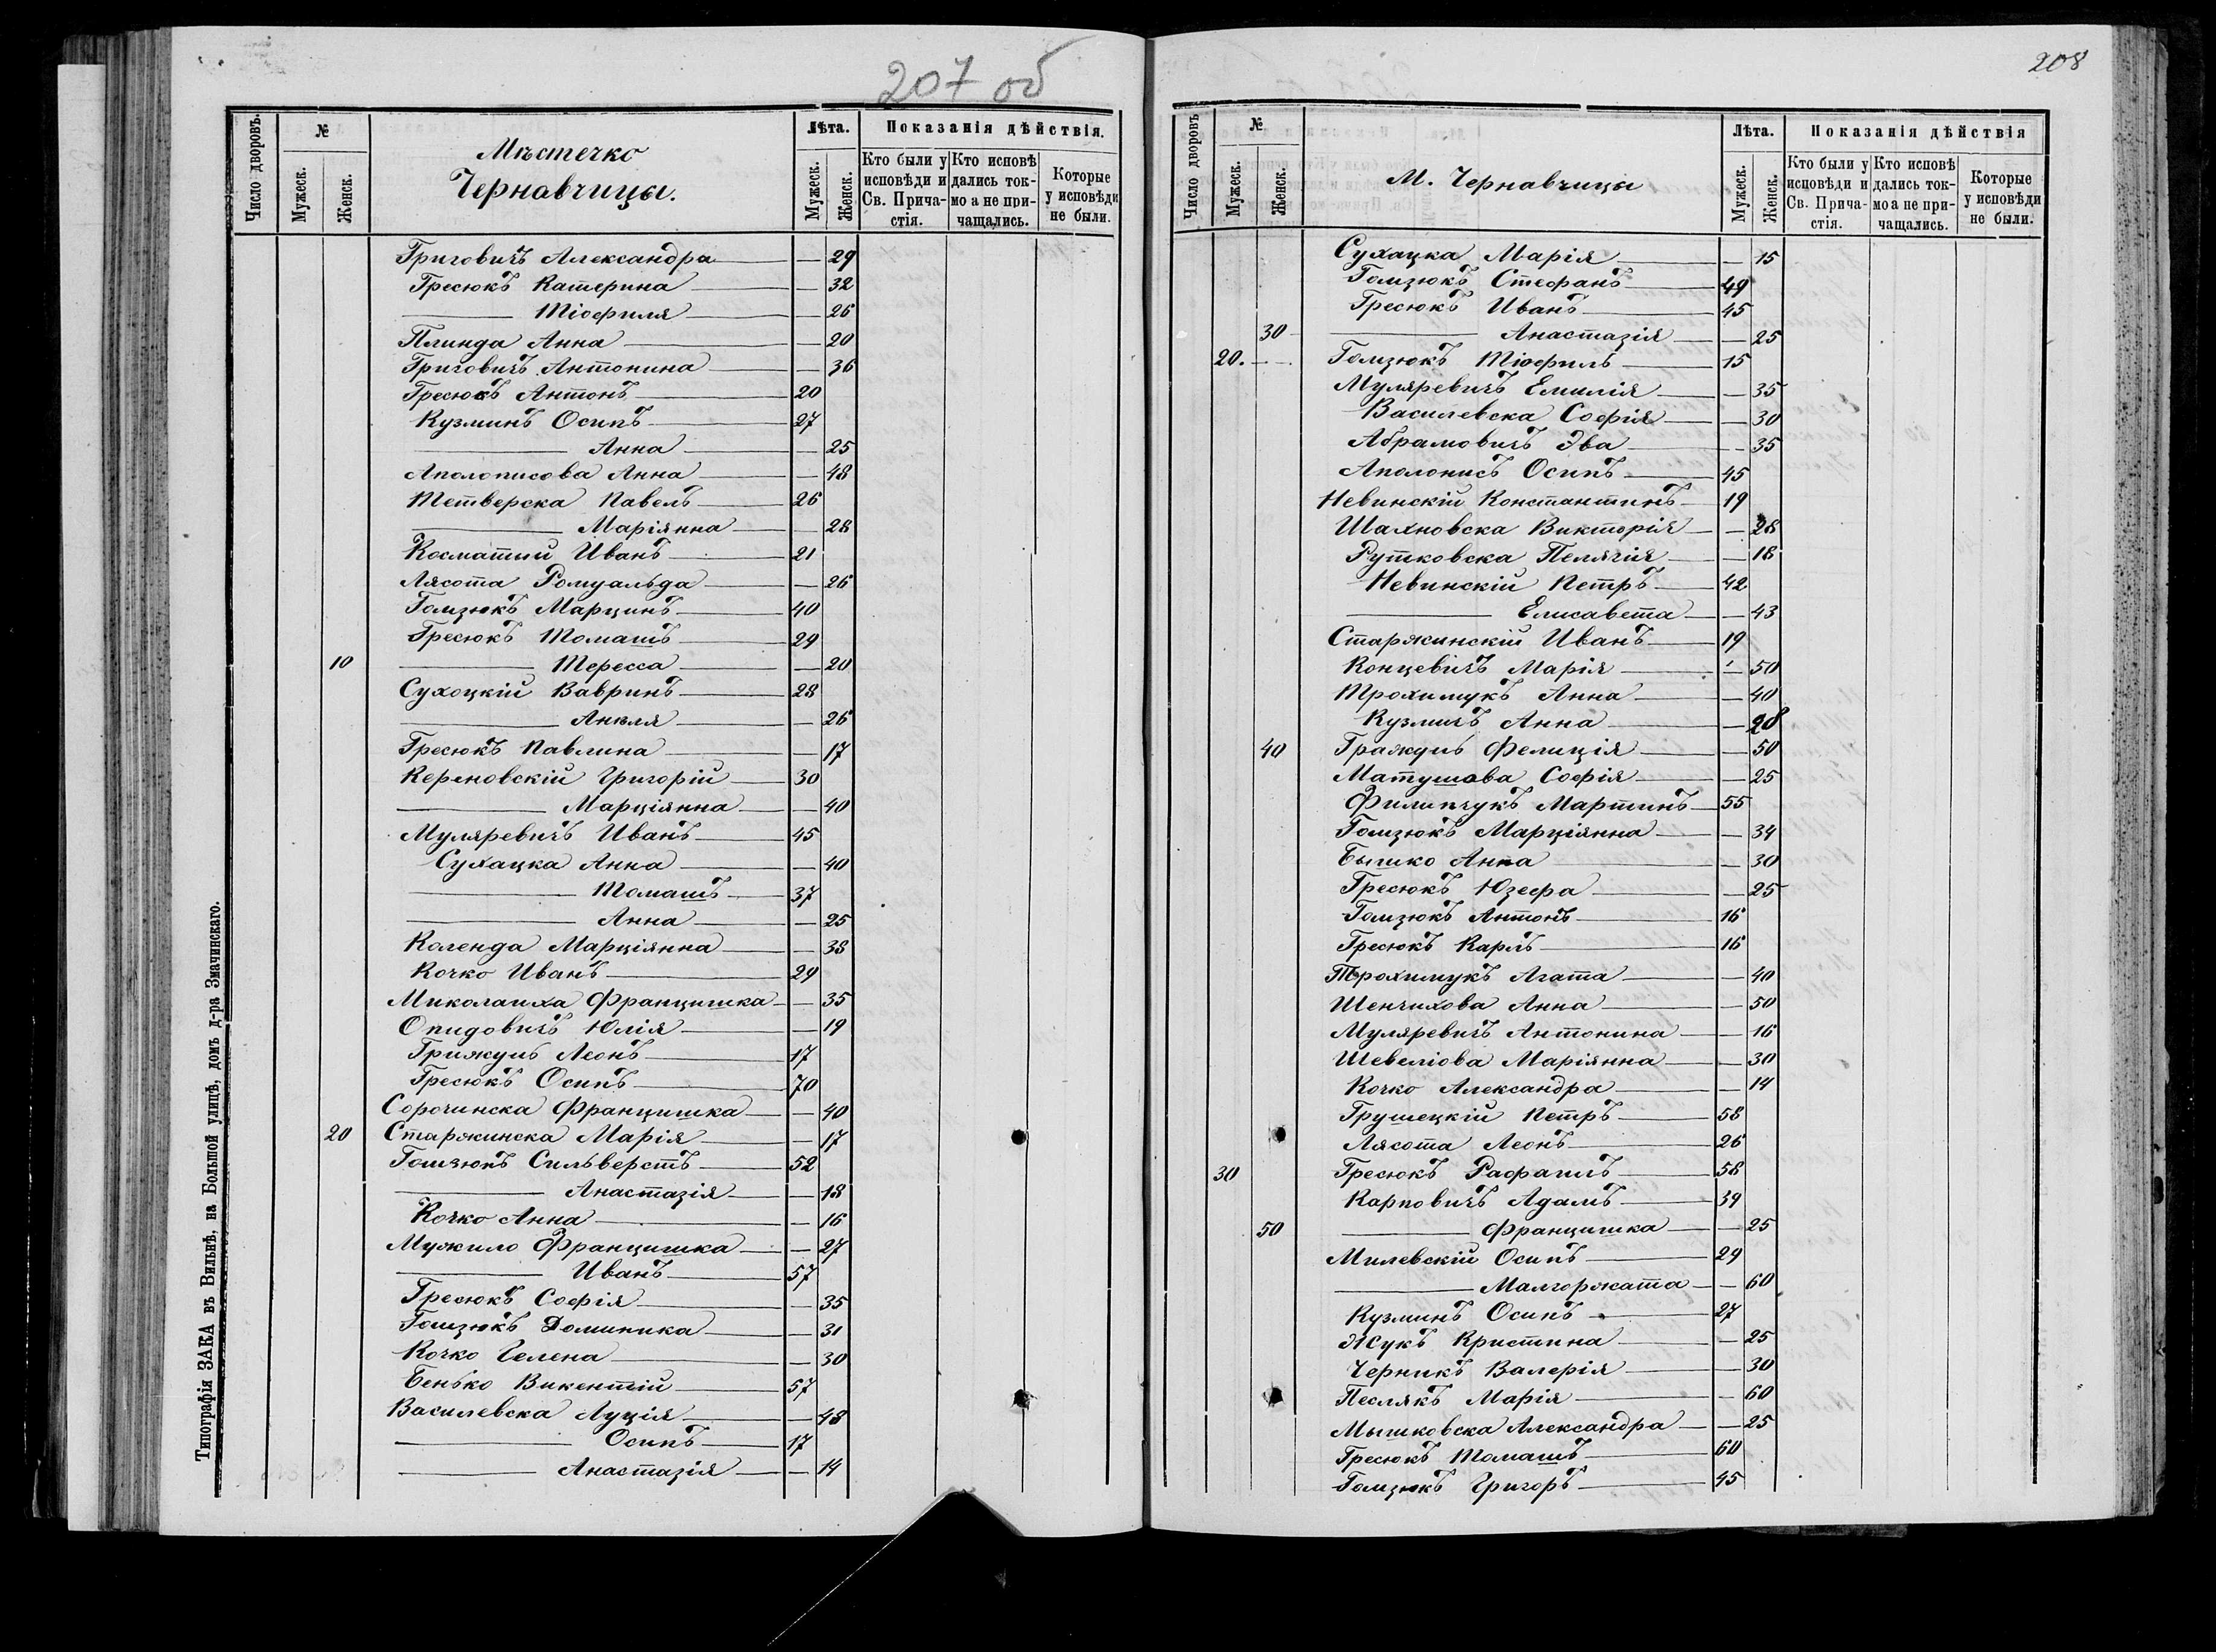 207 об
Число дворовъ.
№
Мужеск.
Женск.
Мѣстечко
Чернавчицы.
Лѣта.
Мужеск.
Женск.
Показанія дѣйствія.
Кто были у исповѣди и Св. Причастія.
Кто исповѣдались токмо а не причащались.
Которые у исповѣди не были.
Григовичъ Александра — 29
Гресюкъ Катерина — 32
— Тіофиля — 26
Плинда Анна — 20
Григовичъ Антонина — 36
Гресюкъ Антонъ 20
Кузминъ Осипъ 27
— Анна — 25
Аполописова Анна — 48
Тетверска Павелъ 26
— Маріянна — 28
Косматый Иванъ 21
Лясота Ромуальда — 26
Гомзюкъ Марцинъ 40
Гресюкъ Томашъ 29
10 — Тересса — 20
Сухоцкій Вавринъ 28
— Анеля — 26
Гресюкъ Павлина — 17
Керновскій Григорій 30
— Марціянна — 40
Муляревичъ Иванъ 45
Сухацка Анна — 40
— Томашъ 37
— Анна — 25
Коленда Марціянна — 38
Кочко Иванъ 29
Миколаиха Францишка — 35
Опидовичъ Юлія — 19
Грижуль Леонъ 17
Гресюкъ Осипъ 70
Сорочинска Францишка — 40
20 Старжинска Марія — 17
Гомзюкъ Сильверстъ 52
— Анастазія — 18
Кочко Анна — 16
Мужило Францишка — 27
— Иванъ 57
Гресюкъ Софія — 35
Гомзюкъ Доминика — 31
Кочко Гелена — 30
Бенько Викентій 57
Василевска Луція — 48
— Осипъ 17
— Анастазія — 14
Типографія ЗАКА въ Вильнѣ, на Большой улицѣ, домъ д-ра Змачинскаго.
208
Число дворовъ
№
Мужеск.
Женск.
М. Чернавчицы
Лѣта.
Мужеск.
Женск.
Показанія дѣйствія
Кто были у исповѣди и Св. Причастія.
Кто исповѣдались токмо а не причащались.
Которые у исповѣди не были.
Сухацка Марія — 15
Гомзюкъ Стефанъ 49
Гресюкъ Иванъ 45
30 — Анастазія — 25
20. Гомзюкъ Тіофиль 15
Муляревичъ Емилія — 35
Василевска Софія — 30
Абрамовичъ Эва — 35
Аполонисъ Осипъ 45
Невинскій Константинъ 19
Шахновска Викторія — 28
Рутковска Пелягія — 18
Невинскій Петръ 42
— Елисавета — 43
Старжинскій Иванъ 19
Концевичъ Марія — 50
Трохимукъ Анна — 40
Кузмичъ Анна — 28
40 Гражуль Фелиція — 50
Матушова Софія — 25
Филипчукъ Мартинъ 55
Гомзюкъ Марціянна — 34
Бышко Анна — 30
Гресюкъ Юзефа — 25
Гомзюкъ Антонъ 16
Гресюкъ Карлъ 16
Трохимукъ Агата — 40
Шенчихова Анна — 50
Муляревичъ Антонина — 16
Шевеліова Маріянна — 30
Кочко Александра — 14
Грушецкій Петръ 58
Лясота Леонъ 26
30 Гресюкъ Рафаилъ 58
Карповичъ Адамъ 39
50 — Францишка — 25
Милевскій Осипъ 29
— Малгоржата — 60
Кузминъ Осипъ 27
Жукъ Кристина — 25
Черникъ Валерія — 30
Песлякъ Марія — 60
Мышковска Александра — 25
Гресюкъ Томашъ 60
Гомзюкъ Григоръ 45